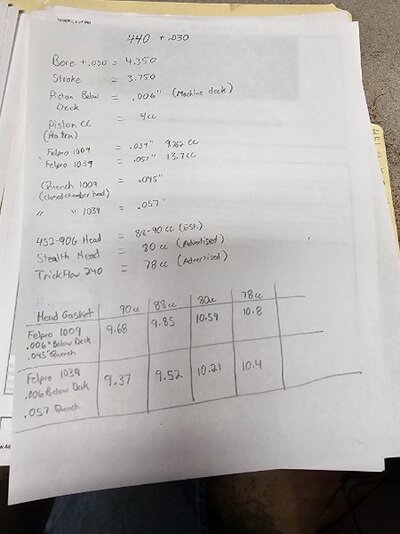 440 + .030
Bore +.030 = 4.350
Stroke = 3.750
Piston Below = .006" (Machine deck)
Deck
Piston CC = 4cc
Felpro 1009 = .039"
Felpro 1039 = .051" 13.7cc
Quench 1009 = .045"
(closed chamber head)
" " 1039 = .057"
452-906 Head = 88-90cc
Stealth Head = 80cc (Advertised)
Trick Flow 240 = 78cc (Advertised)
Head Gasket 90cc 88cc 80cc 78cc
Felpro 1009 9.68 9.85 10.59 10.8
.006" Below Deck
.045" Quench
Felpro 1039 9.37 9.52 10.21 10.4
.006 Below Deck
.057 Quench